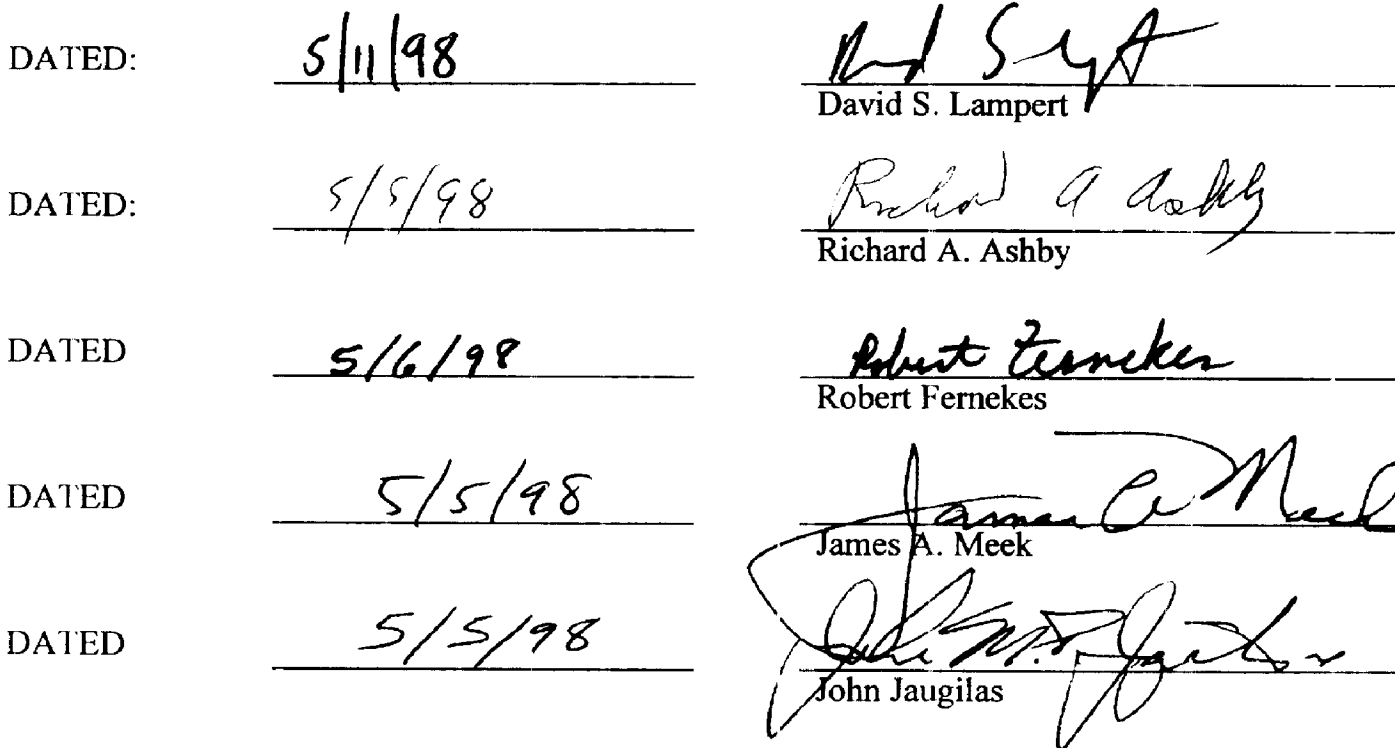 DATED: 5/11/98
David S. Lampert
DATED: 5/5/98 Richard A Ashby
Richard A. Ashby
DATED 5/6/98 Robert Fernekes
Robert Fernekes
DATED 5/5/98 James A Meek
James A. Meek
DATED 5/5/98
John Jaugilas